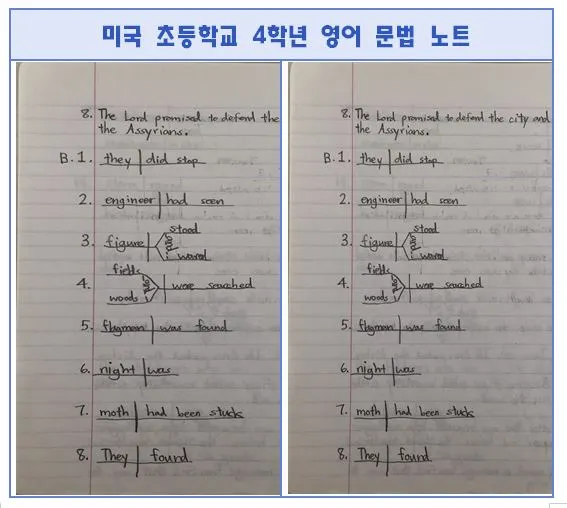 미국 초등학교 4학년 영어 문법 노트
8. The Lord promised to defend the
the Assyrians.
B. 1. they | did stop
2. engineer | had seen
3. figure | stood
and
waved
4. fields
and
woods | were searched
5. flagman | was found
6. night | was
7. moth | had been stuck
8. They | found
8. The Lord promised to defend the city and
the Assyrians.
B. 1. they | did stop
2. engineer | had seen
3. figure | stood
and
waved
4. fields
and
woods | were searched
5. flagman | was found
6. night | was
7. moth | had been stuck
8. They | found